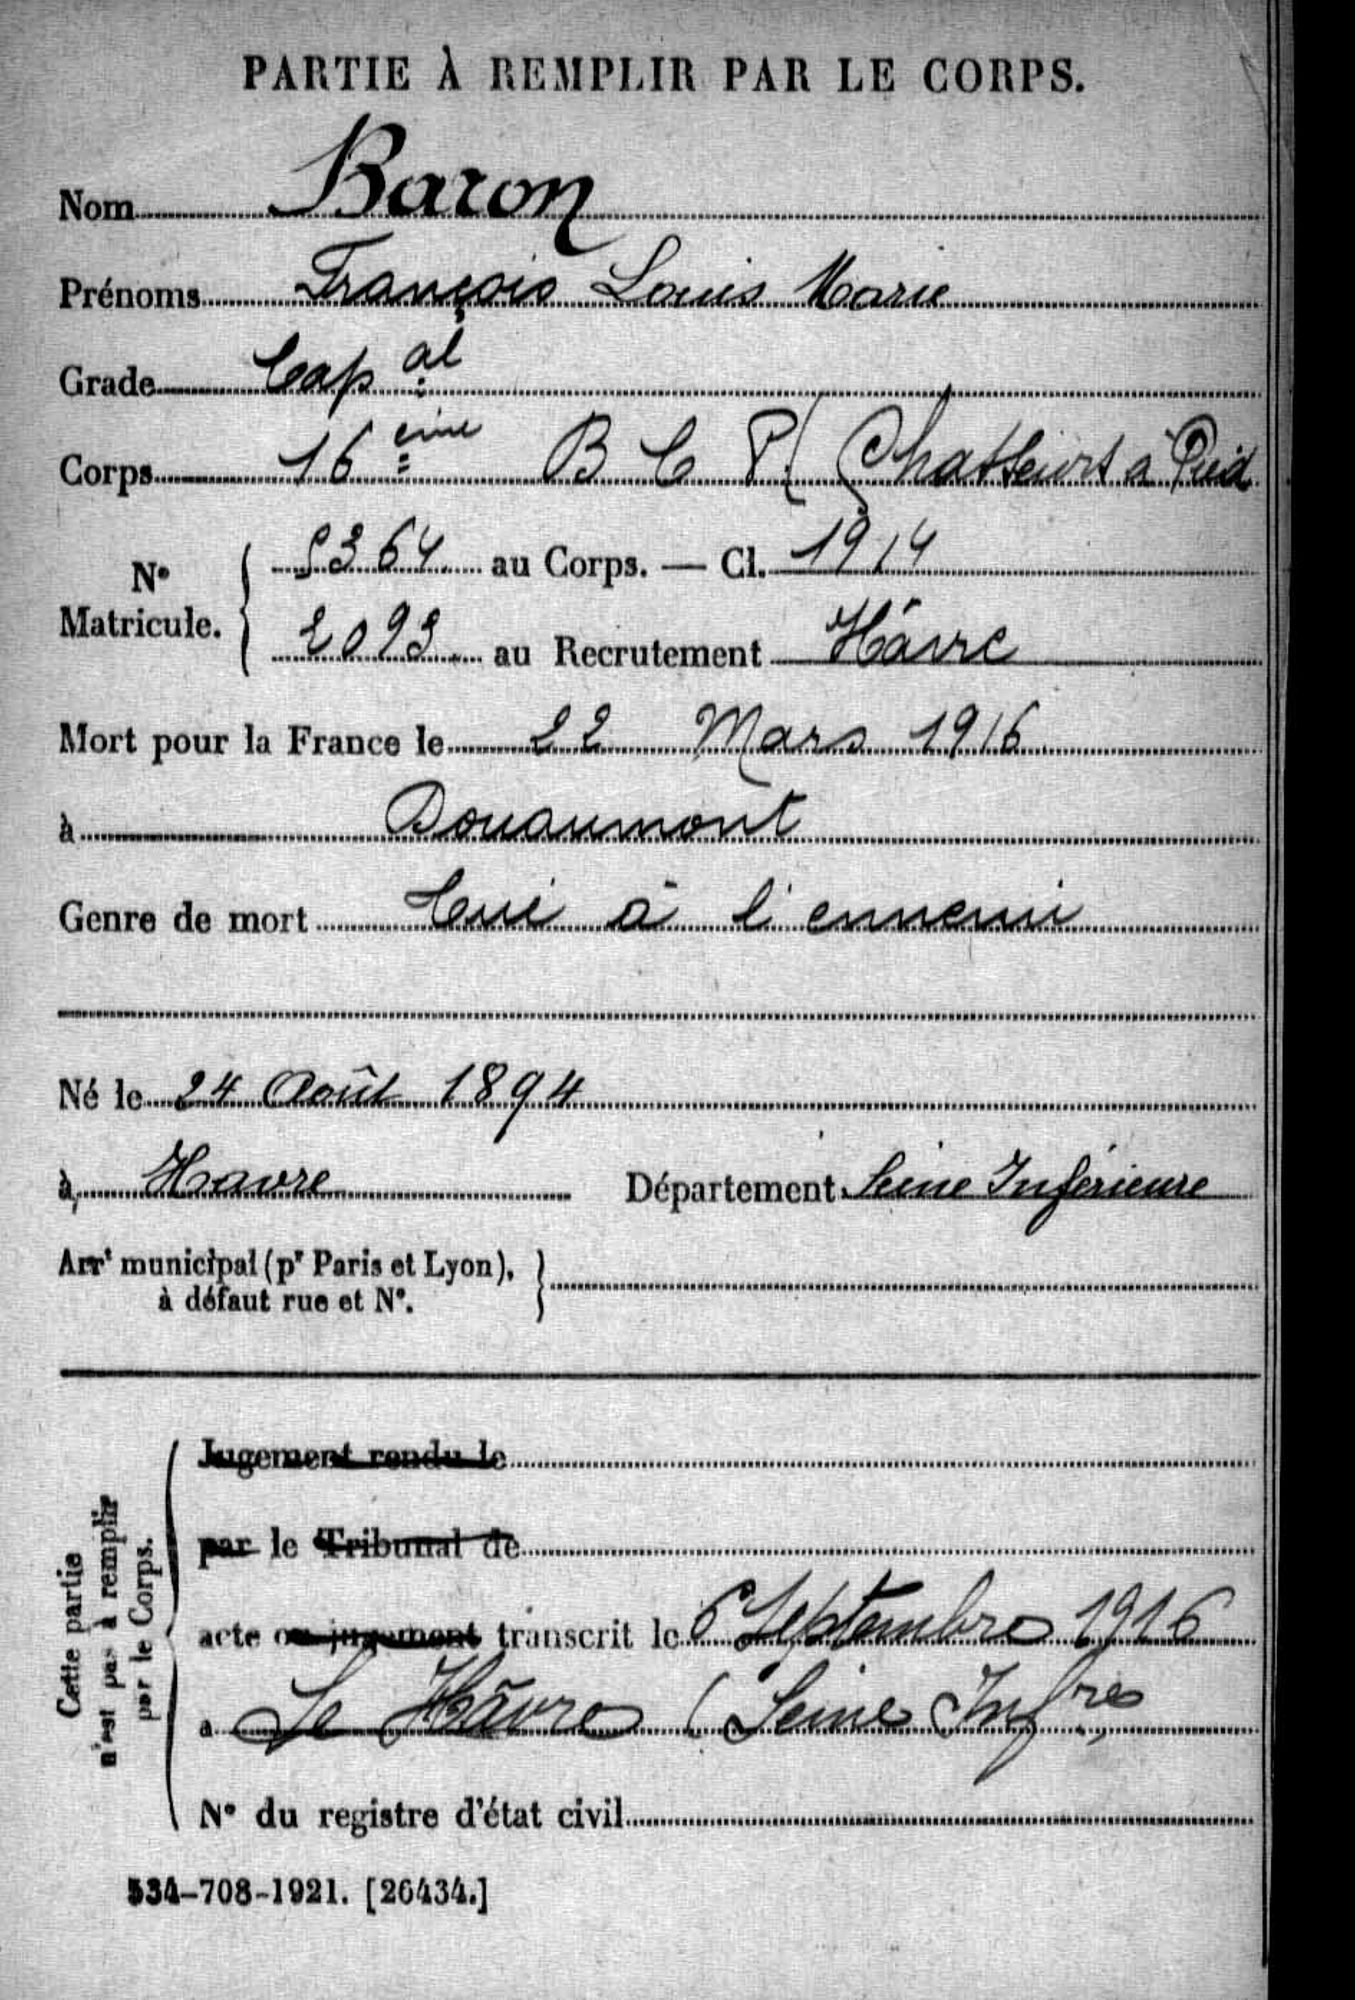 PARTIE À REMPLIR PAR LE CORPS.
Nom Baron
Prénoms François Louis Marie
Grade Cap al
Corps 16 ème B C P ( Chasseurs à Pied
N° Matricule. { 5364 au Corps. — Cl. 1914
2093 au Recrutement Hâvre
Mort pour la France le 22 Mars 1916
à Douaumont
Genre de mort Tué à l'ennemi
Né le 24 Août 1894
à Havre Département Seine Inférieure
Arr^t municipal (p^r Paris et Lyon),
à défaut rue et N°. }
Cette partie
n'est pas à remplir
par le Corps.
Jugement rendu le
par le Tribunal de
acte ou jugement transcrit le 6 Septembre 1916
a Le Hâvre (Seine Inf^re)
N° du registre d'état civil
534-708-1921. [26434.]